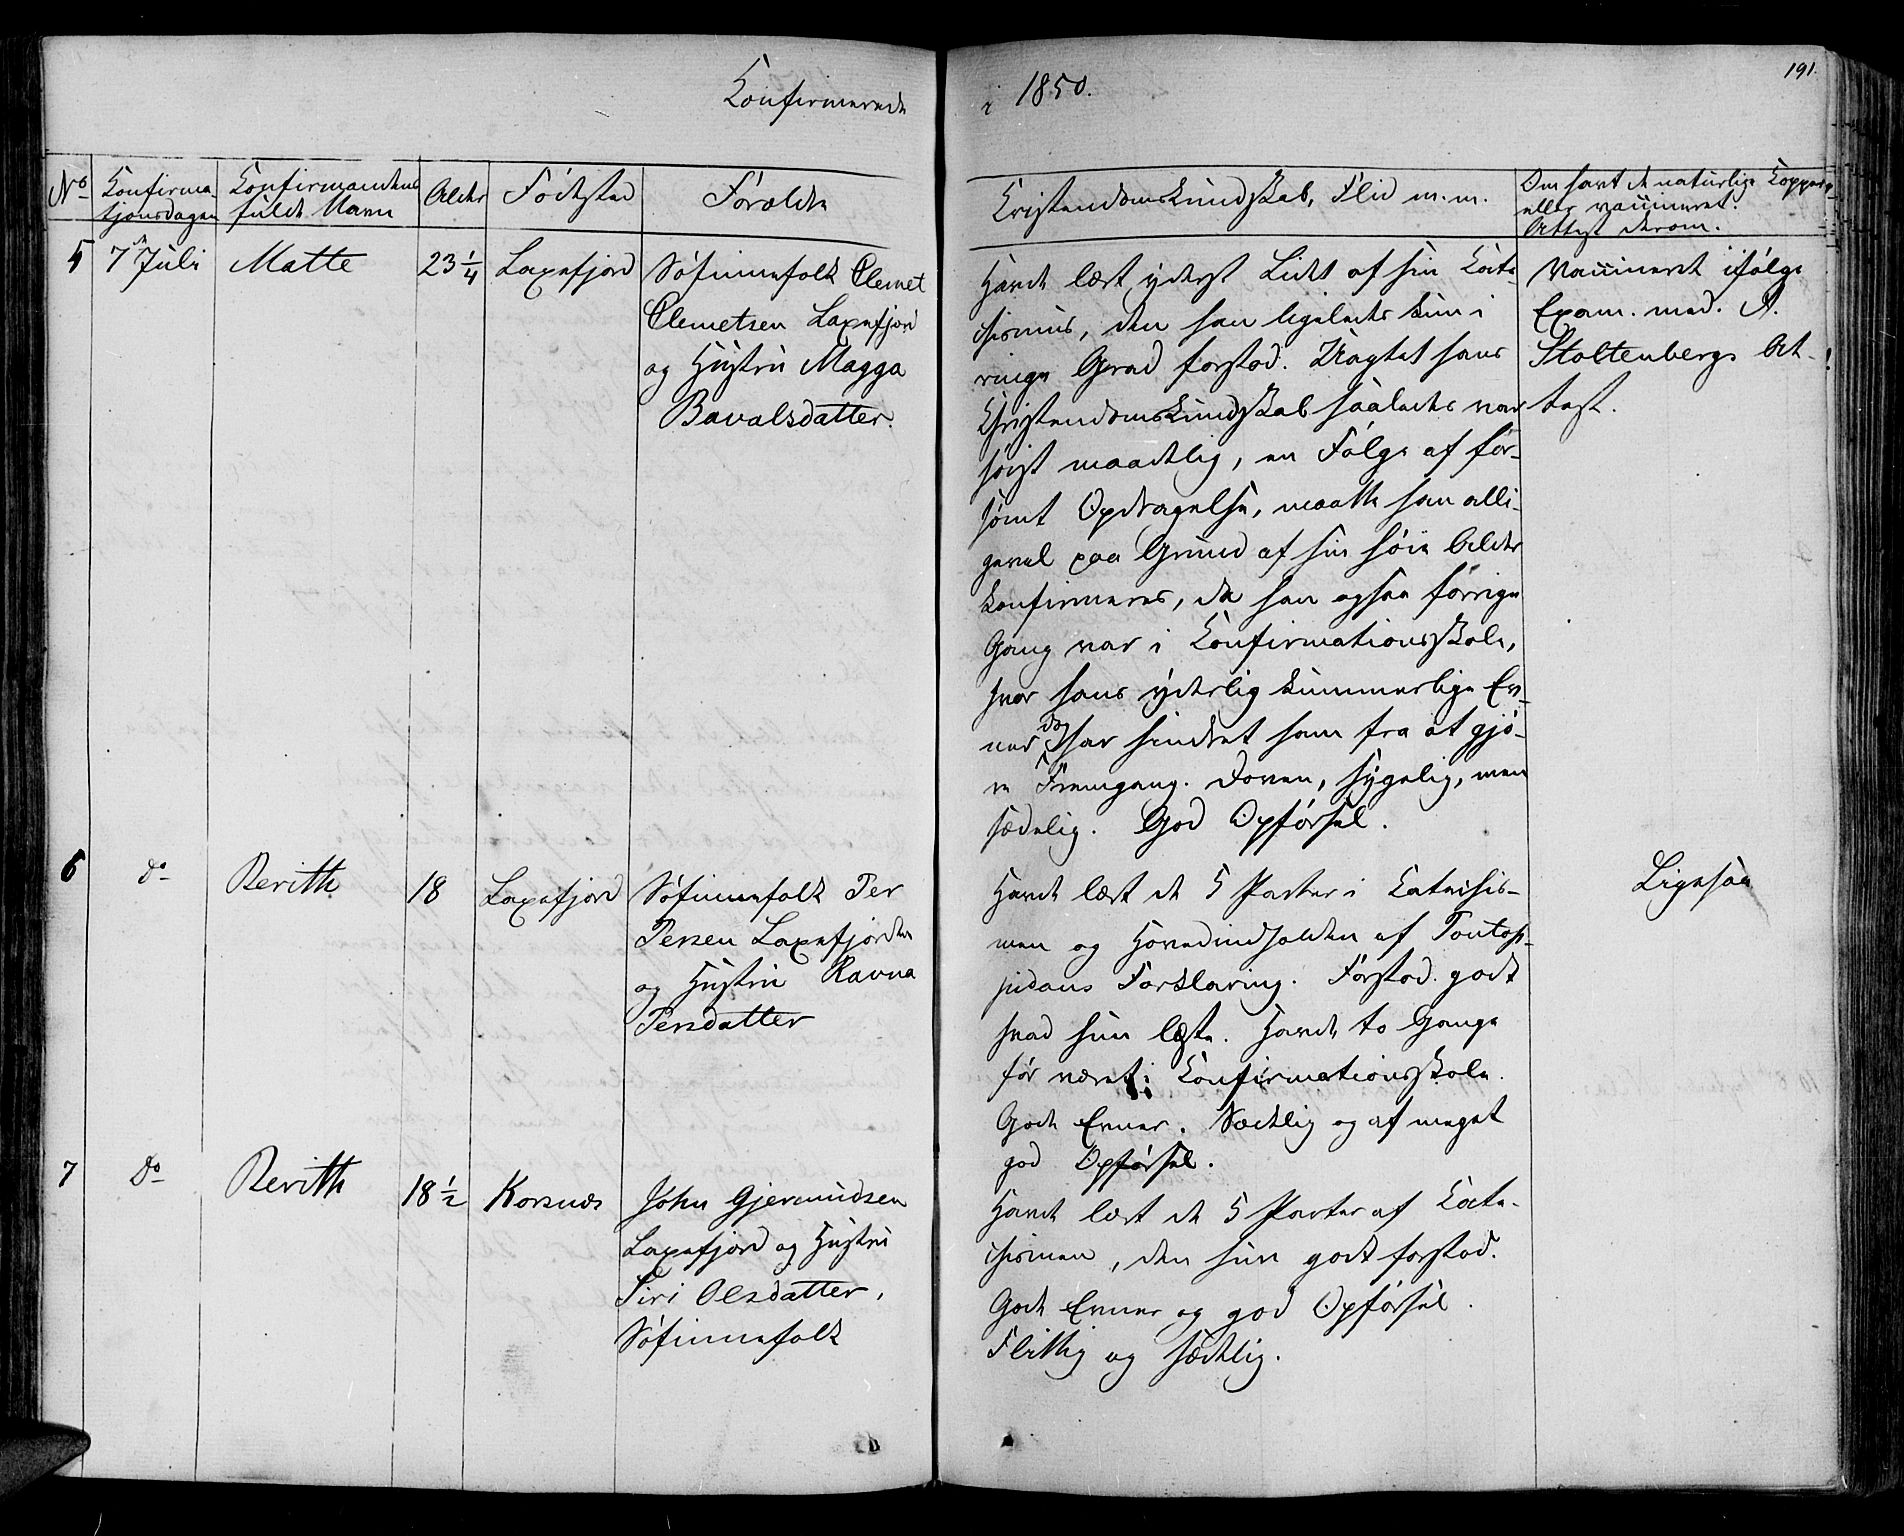 191.
Konfirmerede
i 1850.
No
Konfirma-
tionsdagen
Konfirmandens
fulde Navn
Alder
Födested
Forældre
Kristendomskundskab, Flid m. m.
Om havt de naturlige Kopper
eller vaccineret.
Attest derom.
5
7de Juli
Matte
23 1/4
Laxefjord
Söfinnefolk Clemet
Clemetsen Laxefjord
og Hustru Magga
Bavalsdatter.
Havde læst yderst Lidt af sin Cate-
chismus, den han ligeledes kun i
ringe Grad forstod. Uagtet hans
Christendomskundskab saaledes var
höist maadelig, en Fölge af for-
sömt Opdragelse, maatte han alli-
gevel paa Grund af sin höie Alder
konfirmeres, da han ogsaa forrige
Gang var i Konfirmationsskole,
hvor hans yderlig kummerlige Ev-
ner dog har hindret ham fra at gjö-
re Fremgang. Doven, sygelig, men
sædelig. God Opförsel.
Vaccineret ifölge
Exam. med. A.
Stoltenbergs At-
test.
6
Do
Berith
18
Laxefjord
Söfinnefolk Per
Persen Laxefjorden
og Hustru Ravna
Persdatter
Havde læst de 5 Parter i Catechis-
men og Hovedindholden af Pontop-
pidans Forklaring. Forstod godt
hvad hun læste. Havde to Gange
för været i Konfirmationsskole.
Gode Evner. Sædelig og af meget
god Opförsel.
Ligesaa
7
Do
Berith
18 1/2
Korsnæs
John Gjermundsen
Laxefjord og Hustru
Siri Olsdatter,
Söfinnefolk
Havde læst de 5 Parter af Cate-
chismen, den hun godt forstod.
Gode Evner og god Opförsel.
Flittig og sædelig.